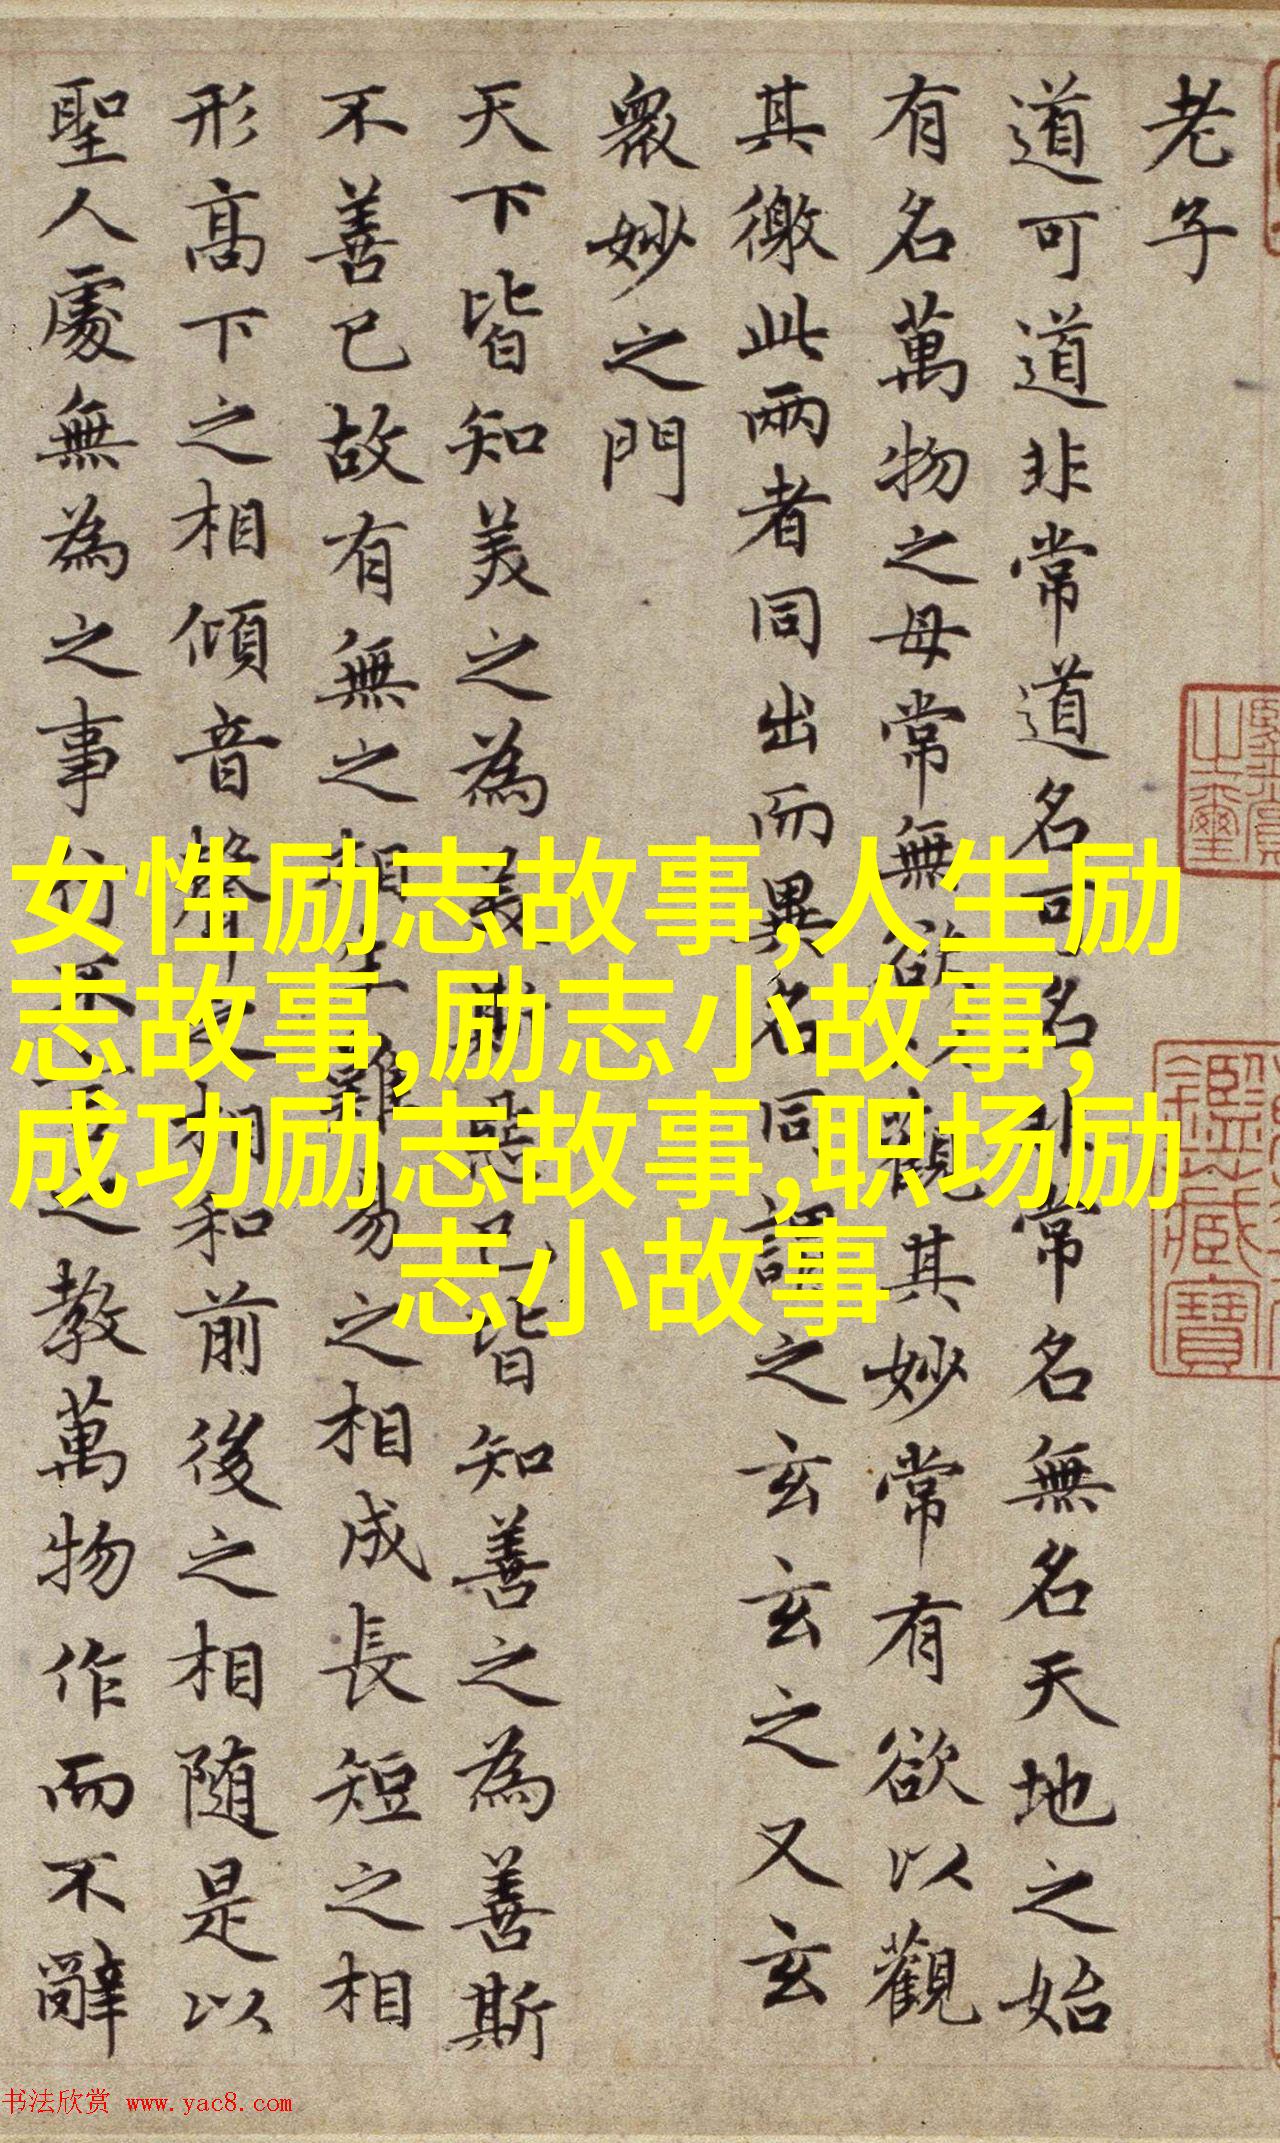 老子
道可道非常道名可名非常名無名天地之始
有名萬物之母常無欲以觀其妙常有欲以觀
其徼此兩者同出而異名同謂之玄玄之又玄
衆妙之門
天下皆知美之為美斯惡已皆知善之為善斯
不善已故有無之相生難易之相成長短之相
形髙下之相傾音聲之相和前後之相随是以
聖人處無為之事行不言之教萬物作而不辭
女性励志故事,人生励
志故事,励志小故事,
成功励志故事,职场励
志小故事
书法欣赏 www.yac8.com